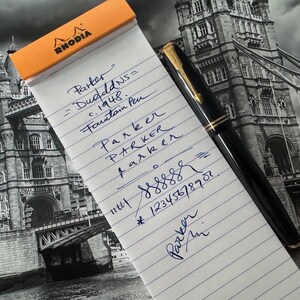 RHODIA
Parker
= Duofold NS =
- 1948 -
Fountain Pen
Parker
PARKER
Parker
1234567890
Parker